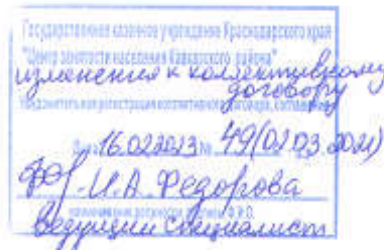 Государственное казенное учреждение Краснодарского края
"Центр занятости населения Кавказского района"
изменения к коллективному
договору
Уведомительная регистрация коллективного договора, соглашения
Дата 16.02.2023 № 49(02.03.2021)
И.А. Федорова
ведущий специалист